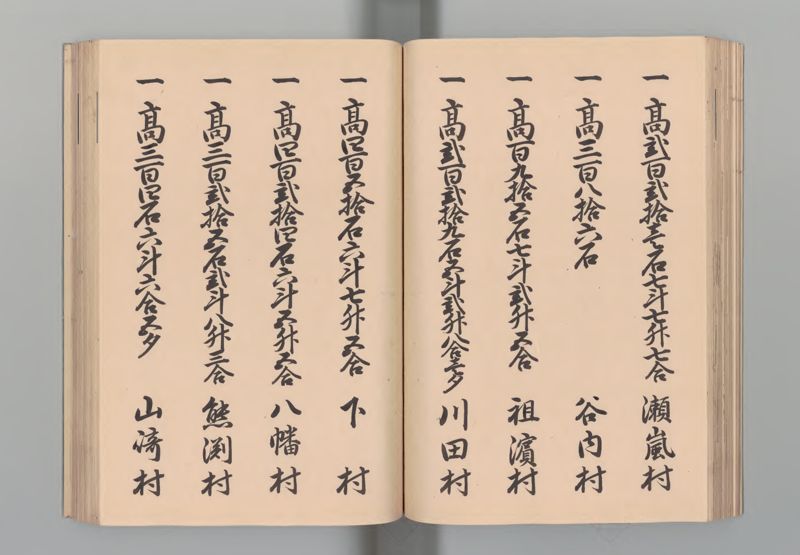 一高弐百弐拾壱石七斗七升七合 瀬嵐村
一高三百八拾六石 谷内村
一高百九拾五石七斗弐升五合 祖濱村
一高弐百弐拾九石五斗弐升八合壱夕 川田村
一高四百五拾石六斗七升五合 下村
一高四百弐拾四石六斗五升五合 八幡村
一高三百弐拾五石弐斗八升三合 熊渕村
一高三百四石六斗六合五夕 山﨑村